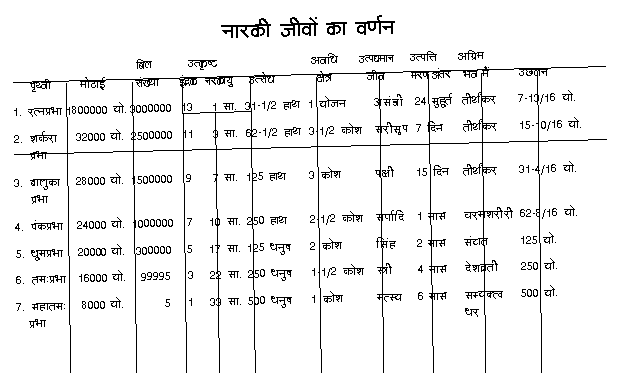 नारकी जीवों का वर्णन
बिल उत्कृष्ट अवधि उत्पद्यमान उत्पत्ति अग्रिम
पृथ्वी मोटाई संख्या इंद्रक नरकायु उत्सेध क्षेत्र जीव मरण अंतर भव में उछलन
1. रत्नप्रभा 1800000 यो. 3000000 13 1 सा. 31-1/2 हाथ 1 योजन असंज्ञी 24 मुहूर्त तीर्थंकर 7-13/16 यो.
2. शर्करा 32000 यो. 2500000 11 3 सा. 62-1/2 हाथ 3-1/2 कोश सरीसृप 7 दिन तीर्थंकर 15-10/16 यो.
प्रभा
3. बालुका 28000 यो. 1500000 9 7 सा. 125 हाथ 3 कोश पक्षी 15 दिन तीर्थंकर 31-4/16 यो.
प्रभा
4. पंकप्रभा 24000 यो. 1000000 7 10 सा. 250 हाथ 2-1/2 कोश सर्पादि 1 मास चरमशरीरी 62-8/16 यो.
5. धूमप्रभा 20000 यो. 300000 5 17 सा. 125 धनुष 2 कोश सिंह 2 मास संयत 125 यो.
6. तमःप्रभा 16000 यो. 99995 3 22 सा. 250 धनुष 1-1/2 कोश स्त्री 4 मास देशव्रती 250 यो.
7. महातमः 8000 यो. 5 1 33 सा. 500 धनुष 1 कोश मत्स्य 6 मास सम्यक्त्व 500 यो.
प्रभा धर